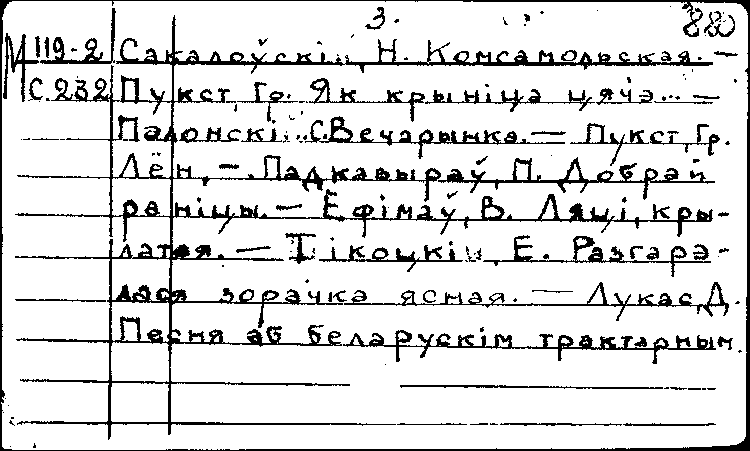 3. 880
М 119-2 Сакалоўскій, Н. Комсамольская. —
С.232 Пукст, Гр. Як крыніца цячэ... —
Палонскі, С. Вечарынка. — Пукст, Гр.
Лён, —. Падкавыраў, П. Добрай
раніцы. — Ёфімаў, В. Ляці, кры-
латая. — Тікоцкій, Е. Разгара-
лася зорачка ясная. — Лукас, Д.
Песня аб беларускім трактарным